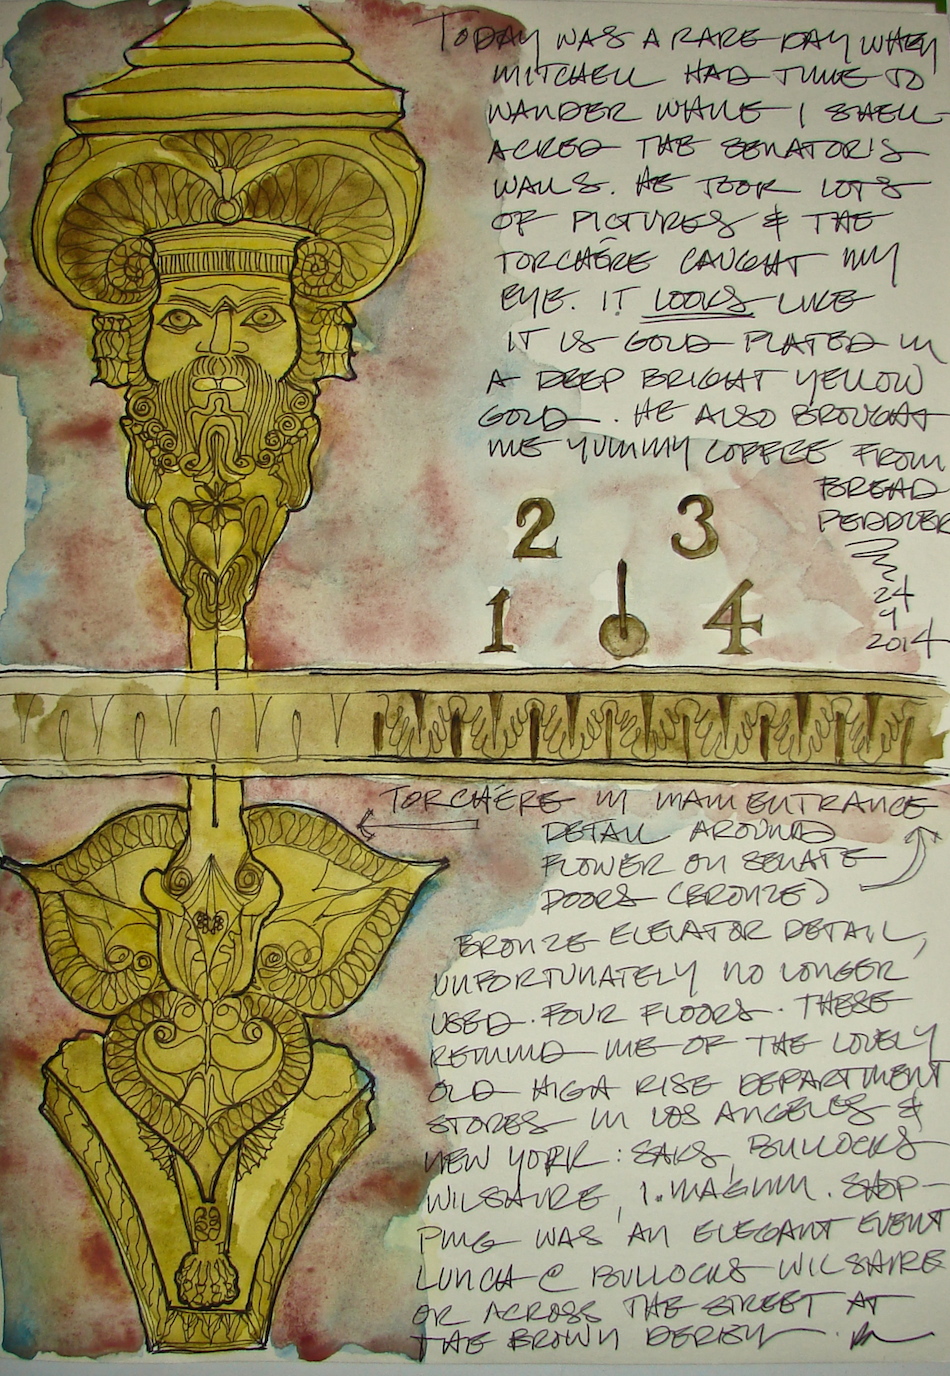 TODAY WAS A RARE DAY WHEN
MITCHELL HAD TIME TO
WANDER WHILE I SHELL-
ACKED THE SENATOR'S
WALLS. HE TOOK LOTS
OF PICTURES & THE
TORCHÈRE CAUGHT MY
EYE. IT LOOKS LIKE
IT IS GOLD PLATED IN
A DEEP BRIGHT YELLOW
GOLD. HE ALSO BROUGHT
ME YUMMY COFFEE FROM
BREAD
PEDDLER
24
9
2014
2 3
1 4
TORCHÈRE IN MAIN ENTRANCE
DETAIL AROUND
FLOWER ON SENATE
DOORS (BRONZE)
BRONZE ELEVATOR DETAIL,
UNFORTUNATELY NO LONGER
USED. FOUR FLOORS. THESE
REMIND ME OF THE LOVELY
OLD HIGH RISE DEPARTMENT
STORES IN LOS ANGELES &
NEW YORK: SAKS, BULLOCKS
WILSHIRE, I. MAGNIN. SHOP-
PING WAS AN ELEGANT EVENT
LUNCH @ BULLOCKS WILSHIRE
OR ACROSS THE STREET AT
THE BROWN DERBY.